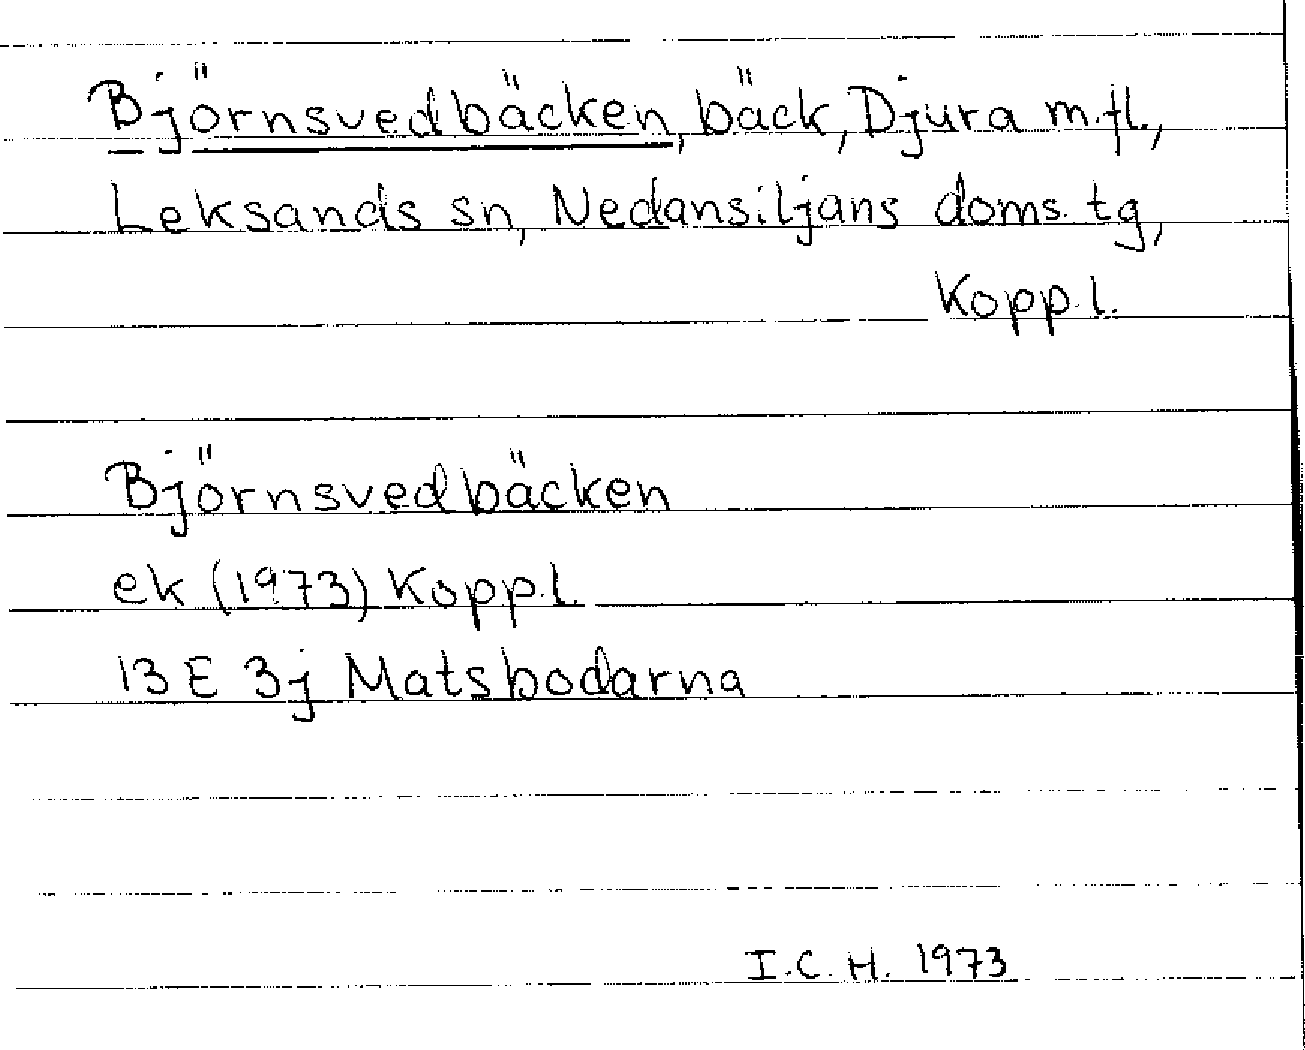 Björnsvedbäcken, bäck, Djura m.fl.,
Leksands sn, Nedansiljans doms. tg,
Kopp.l.
Björnsvedbäcken
ek (1973) Kopp.l.
13 E 3j Matsbodarna
I.C.H. 1973